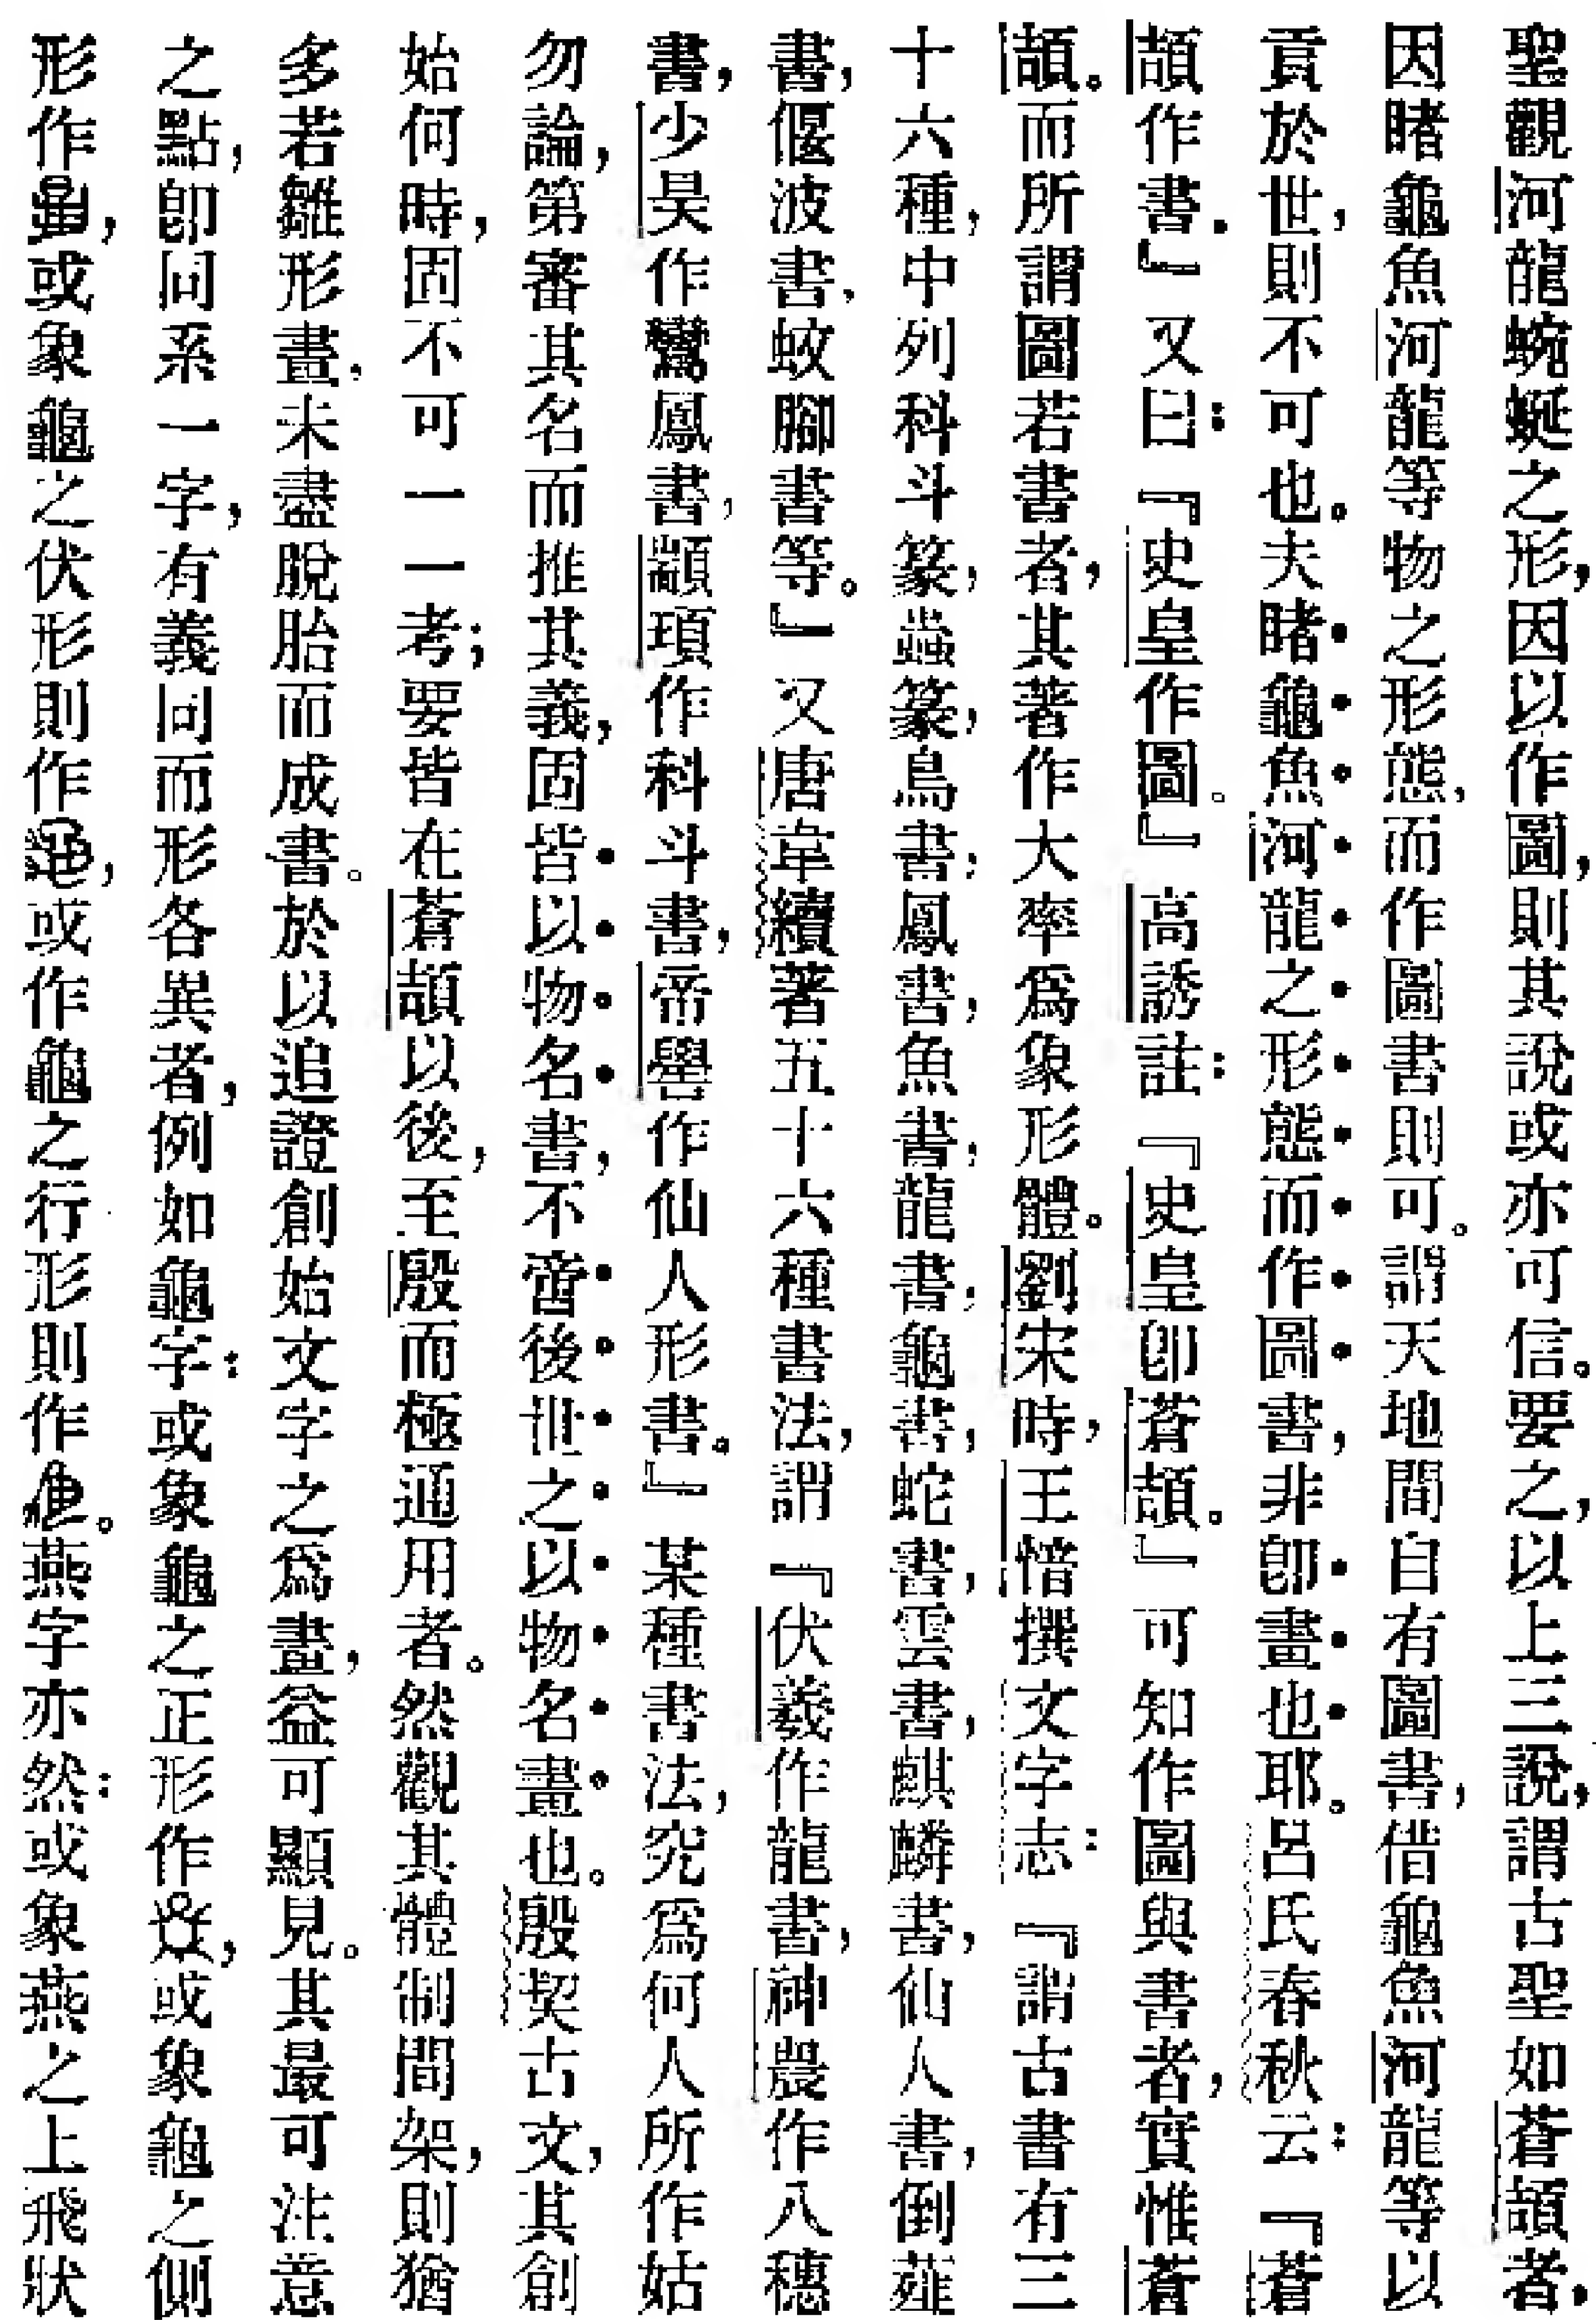 聖觀河龍蜿蜒之形，因以作圖，則其說或亦可信。要之，以上三說，謂古聖如蒼頡者，
因睹龜魚河龍等物之形態，而作圖書則可。謂天地間自有圖書，借龜魚河龍等以
貢於世，則不可也。夫睹龜魚河龍之形態而作圖書，非卽畫也耶。呂氏春秋云：『蒼
頡作書．』又曰：『史皇作圖。』高誘註：『史皇卽蒼頡。』可知作圖與書者，實惟蒼
頡。而所謂圖若書者，其著作大率爲象形體。劉宋時，王愔撰文字志：『謂古書有三
十六種，中列科斗篆，蟲篆，鳥書，鳳書，魚書，龍書，龜書，蛇書，雲書，麒麟書，仙人書，倒薤
書，偃波書，蚊腳書等。』又唐韋續著五十六種書法，謂『伏羲作龍書，神農作八穗
書，少昊作鸞鳳書，顓頊作科斗書，帝嚳作仙人形書。』某種書法，究爲何人所作姑
勿論，第審其名而推其義，固皆以物名書，不啻後世之以物名畫也。殷契古文，其創
始何時，固不可一一考；要皆在蒼頡以後，至殷而極通用者。然觀其體制間架，則猶
多若雛形畫，未盡脫胎而成書。於以追證創始文字之爲畫，益可顯見。其最可注意
之點，卽同系一字，有義同而形各異者，例如龜字：或象龜之正形作，或象龜之側
形作，或象龜之伏形則作，或作龜之行形則作。燕字亦然：或象燕之上飛狀